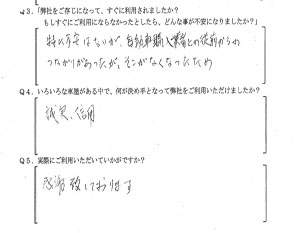 Q3.「弊社をご存じになって、すぐにご利用されましたか?
もしすぐにご利用にならなかったとしたら、どんな事が不安になりましたか?」
特に不安はないが、自動車購入業者との従前からの
つながりがあったが、そこがなくなったため
Q4.いろいろな車屋がある中で、何が決め手となって弊社をご利用いただけましたか?
誠実、信用
Q5.実際にご利用いただいていかがですか?
感謝致しております